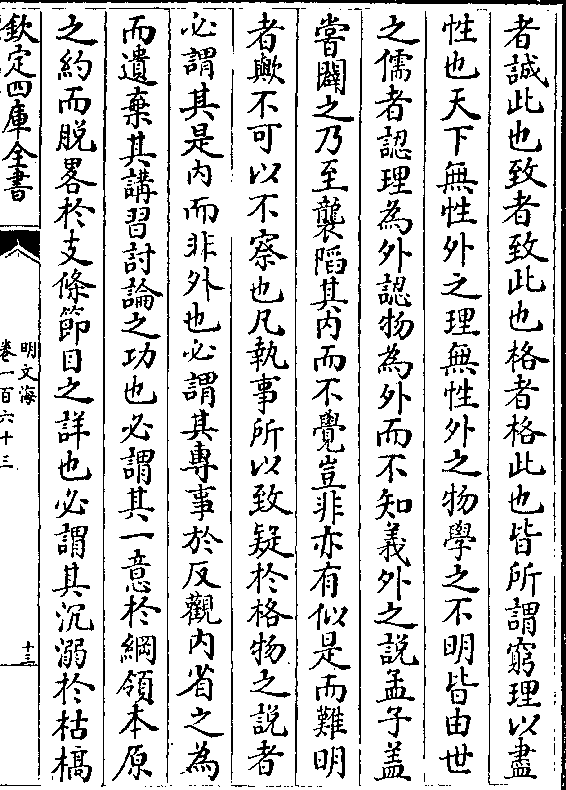 者誠此也致者致此也格者格此也皆所謂窮理以盡
性也天下無性外之理無性外之物學之不明皆由世
之儒者認理為外認物為外而不知義外之說孟子盖
嘗闢之乃至襲陷其内而不覺豈非亦有似是而難明
者歟不可以不察也凡執事所以致疑於格物之說者
必謂其是内而非外也必謂其專事於反觀内省之為
而遺棄其講習討論之功也必謂其一意於綱領本原
之約而脱畧於支條節目之詳也必謂其沉溺於枯槁
欽定四庫全書
明文海
卷一百六十三
十三